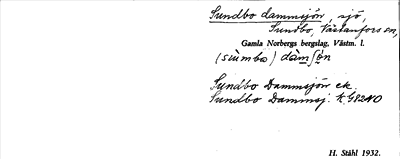 Sundbo dammsjön, sjö,
Sundbo, Västanfors sn,
Gamla Norbergs bergslag, Västm. l.
(sùmbo) dàmʃön
Sundbo Dammsjön ek.
Sundbo Dammsj. K. G82NO
H. Ståhl 1932.